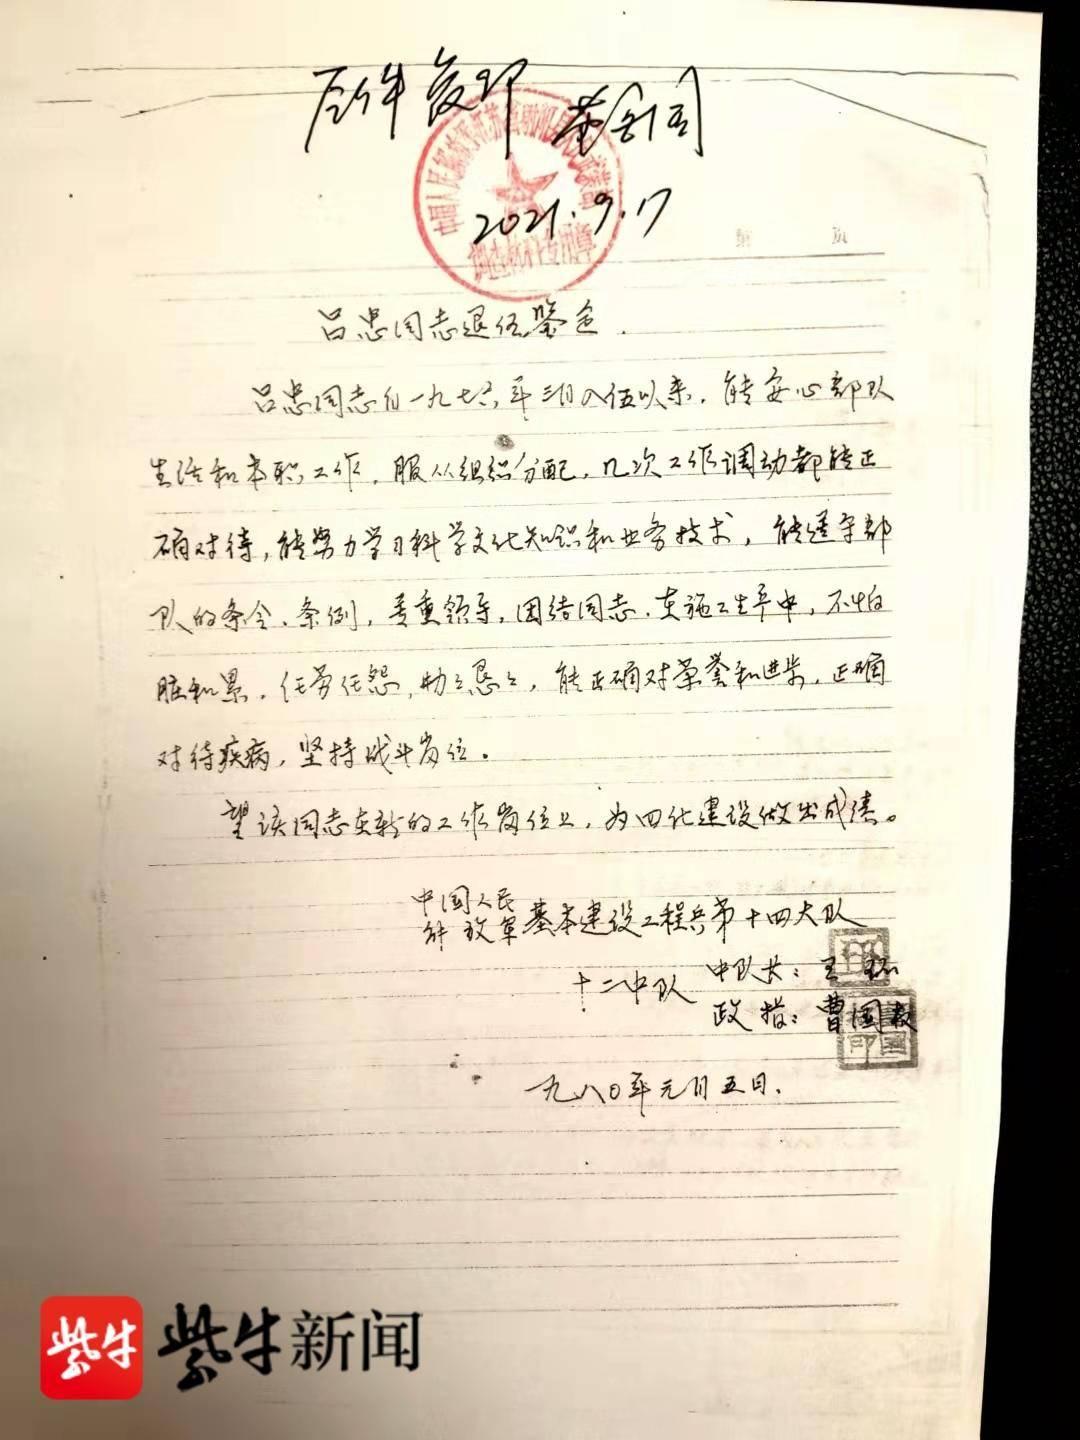 原件复印
2021.9.17
调查材料专用章
第 页
吕忠同志退伍鉴定.
吕忠同志自一九七六年三月入伍以来,能安心部队
生活和本职工作,服从组织分配,几次工作调动都能正
确对待,能努力学习科学文化知识和业务技术,能遵守部
队的条令、条例,尊重领导,团结同志,在施工生产中,不怕
脏和累,任劳任怨,勤勤恳恳,能正确对荣誉和进步,正确
对待疾病,坚持战斗岗位。
望该同志在新的工作岗位上,为四化建设做出成绩。
中国人民
解放军基本建设工程兵第十四大队
十二中队 中队长:王
政指:曹国
一九八〇年元月五日.
紫牛 紫牛新闻